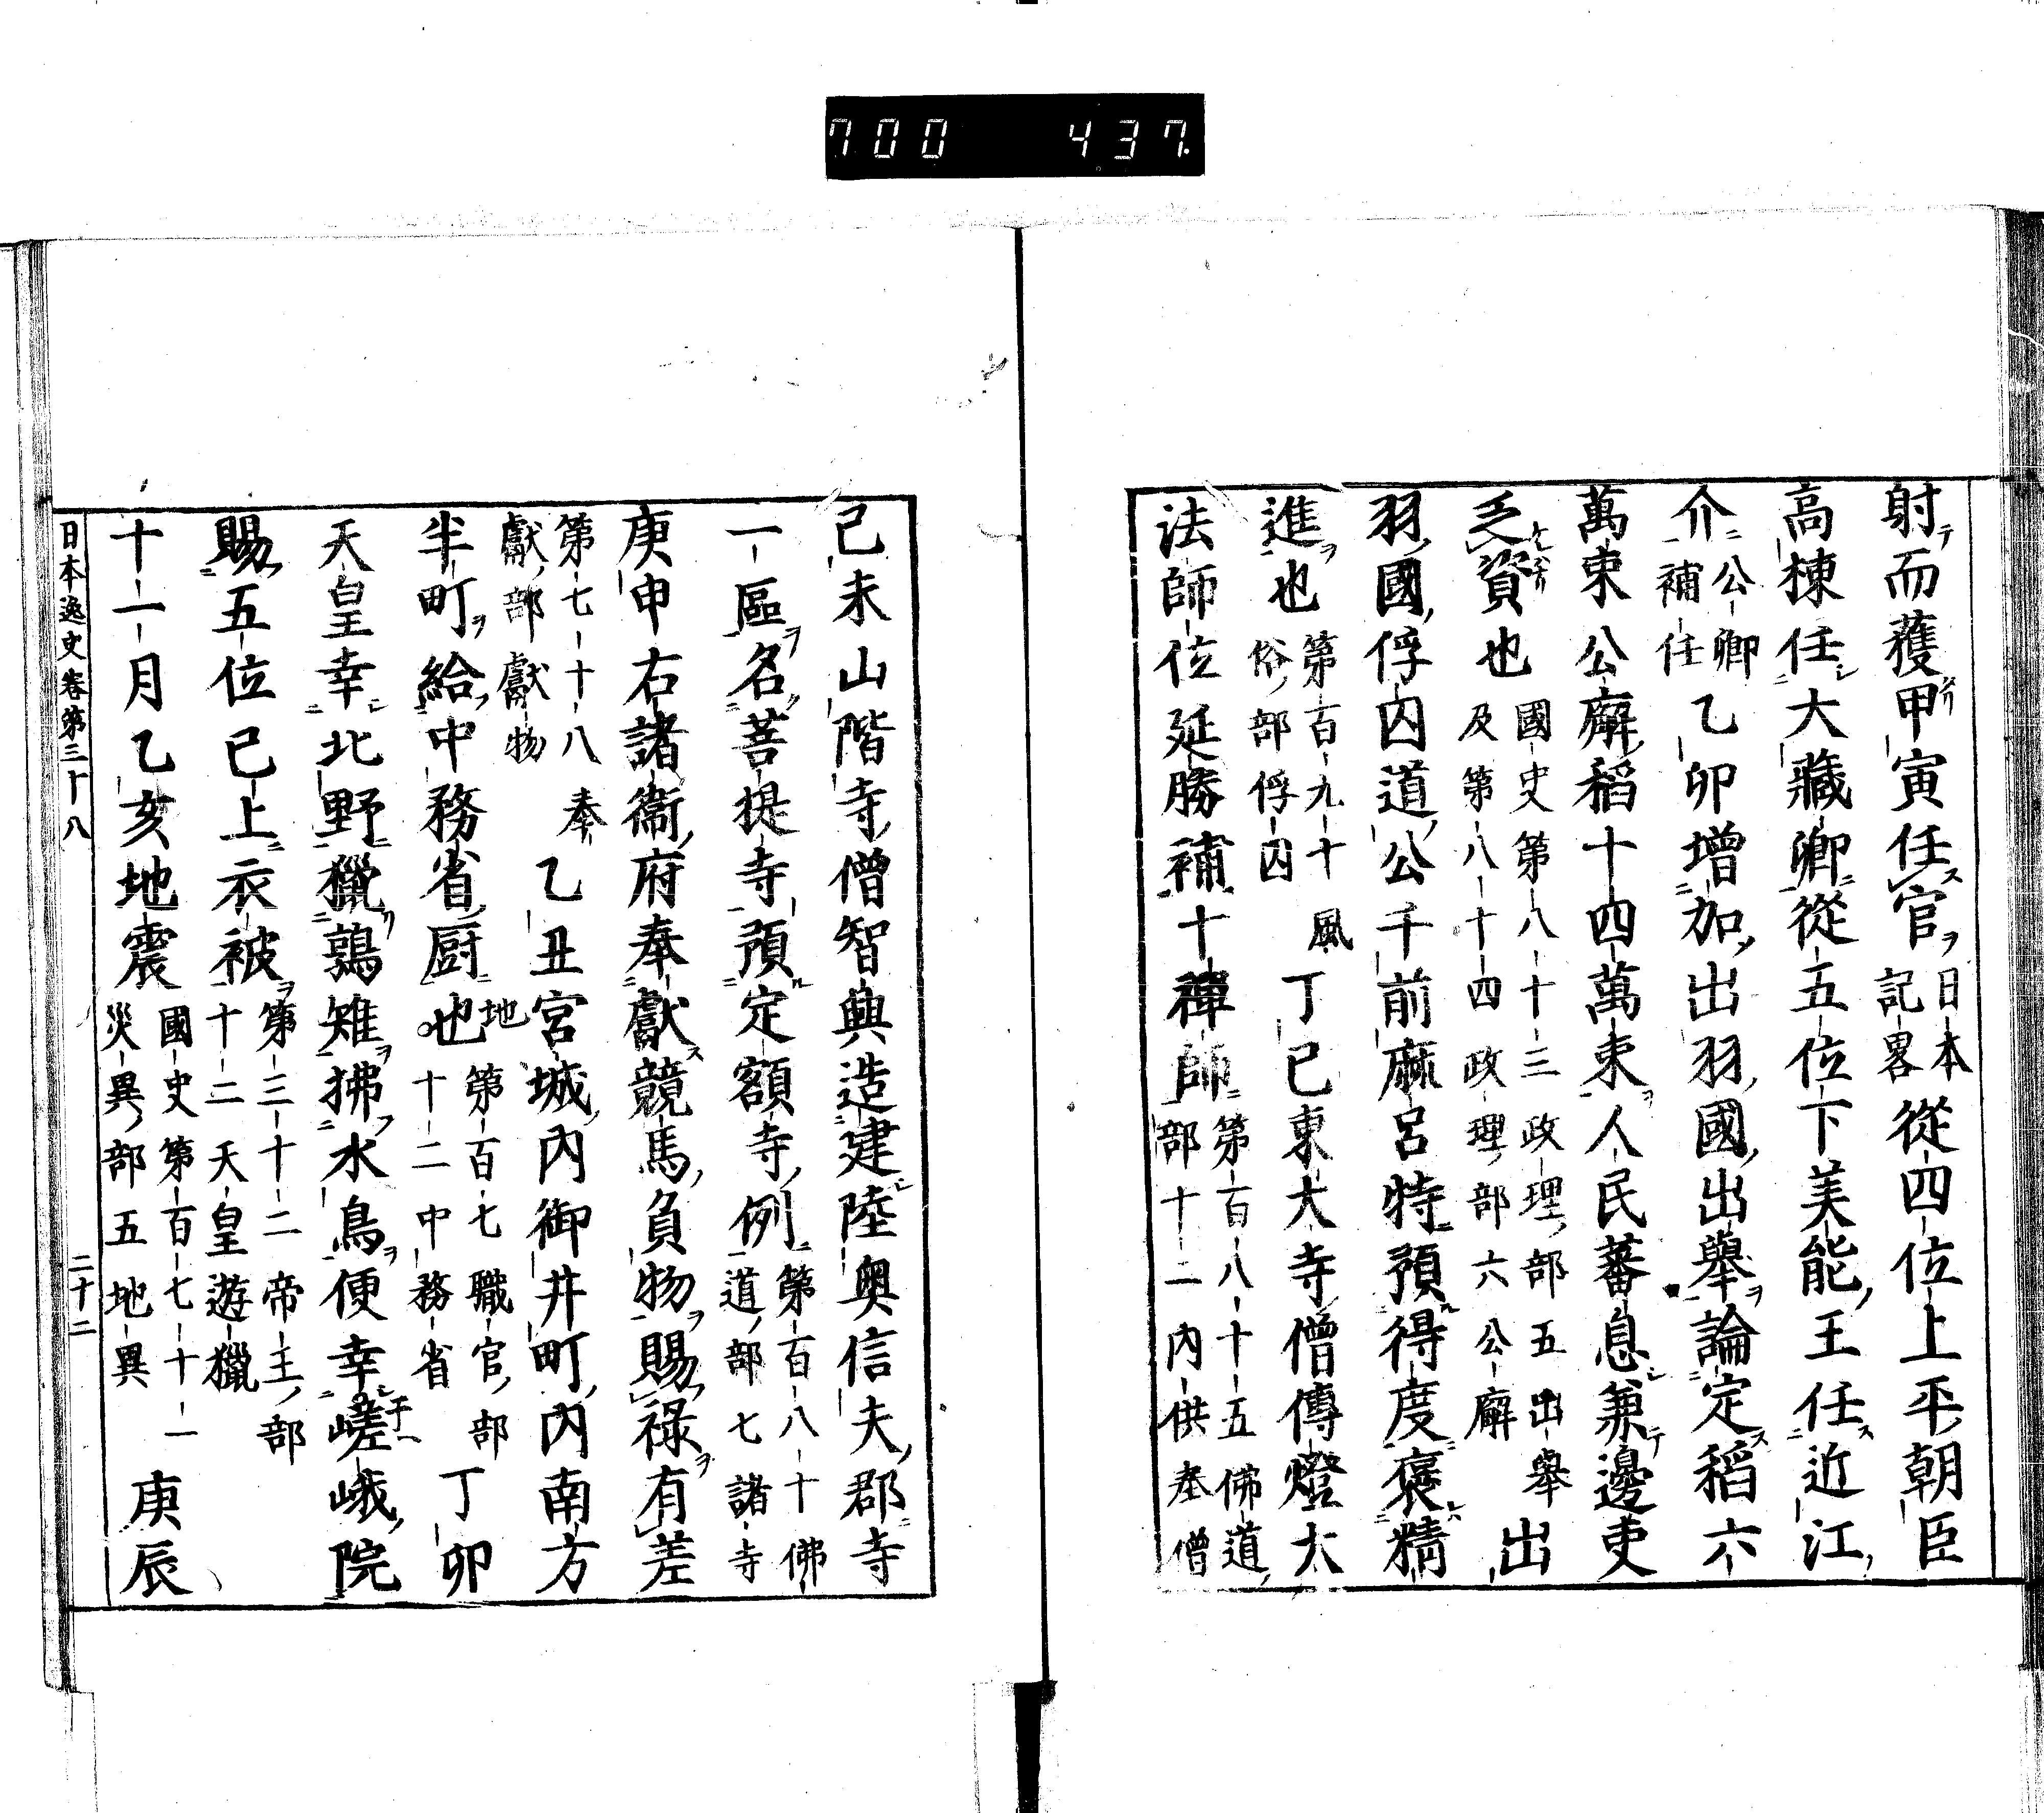 700 437
射而獲甲寅任官日本記畧從四位上平朝臣
高棟任大藏卿從五位下美能王任近江
介公卿補任乙卯增加出羽國出擧論定稻六
萬束公廨稻十四萬束人民蕃息兼邊吏
乏資也國史第八十三政理部五出擧及第八十四政理部六公廨出
羽國俘囚道公千前麻呂特預得度褒精
進也第百九十風俗部俘囚丁巳東大寺僧傳燈大
法師位延勝補十禪師第百八十五佛道部十二內供奉僧
己未山階寺僧智興造建陸奧信夫郡寺
一區名菩提寺預定額寺例第百八十佛道部七諸寺
庚申右諸衞府奉獻競馬負物賜祿有差
第七十八奉獻部獻物乙丑宮城內御井町內南方
半町給中務省厨地也第百七職官部十二中務省丁卯
天皇幸北野獵鶉雉拂水鳥便幸于嵯峨院
賜五位已上衣被第三十二帝王部十二天皇遊獵
十一月乙亥地震國史第百七十一災異部五地異庚辰
日本逸史卷第三十八 二十二